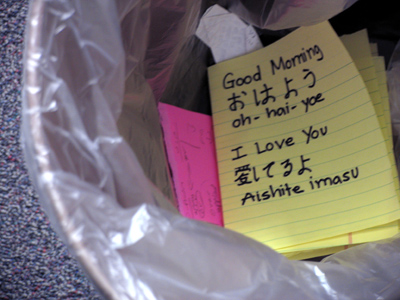 Good Morning
おはよう
oh-hai-yoe
I Love You
愛してるよ
Aishite imasu